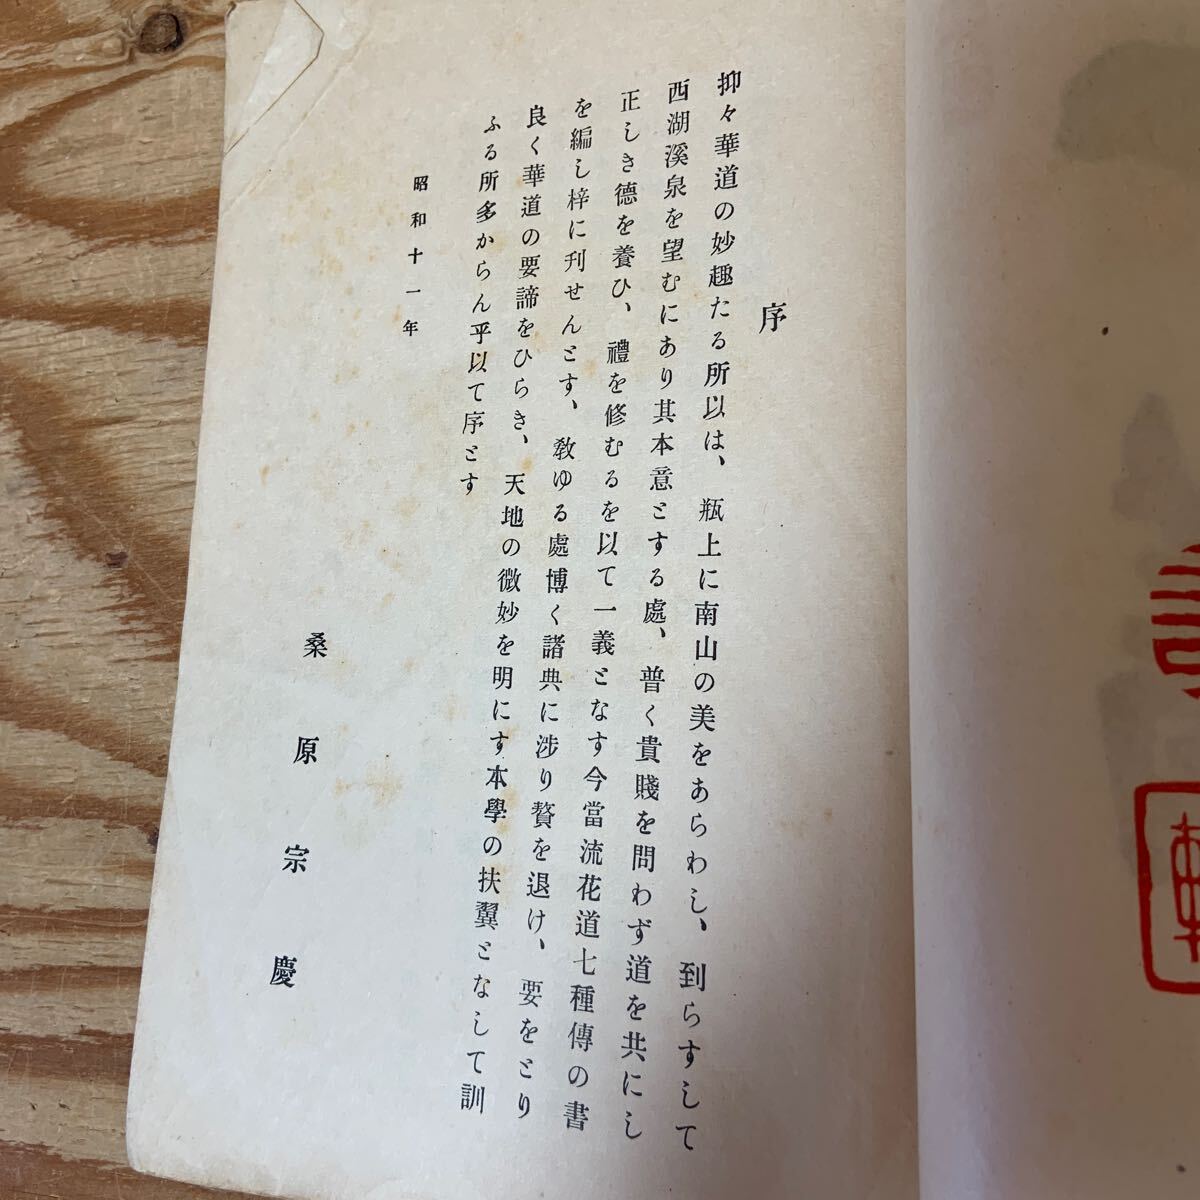 序
抑々華道の妙趣たる所以は、瓶上に南山の美をあらわし、到らすして
西湖溪泉を望むにあり其本意とする處、普く貴賤を問わず道を共にし
正しき德を養ひ、禮を修むるを以て一義となす今當流花道七種傳の書
を編し梓に刋せんとす、敎ゆる處博く諸典に渉り贅を退け、要をとり
良く華道の要諦をひらき、天地の微妙を明にす本學の扶翼となして訓
ふる所多からん乎以て序とす
昭和十一年
桑原宗慶
軒